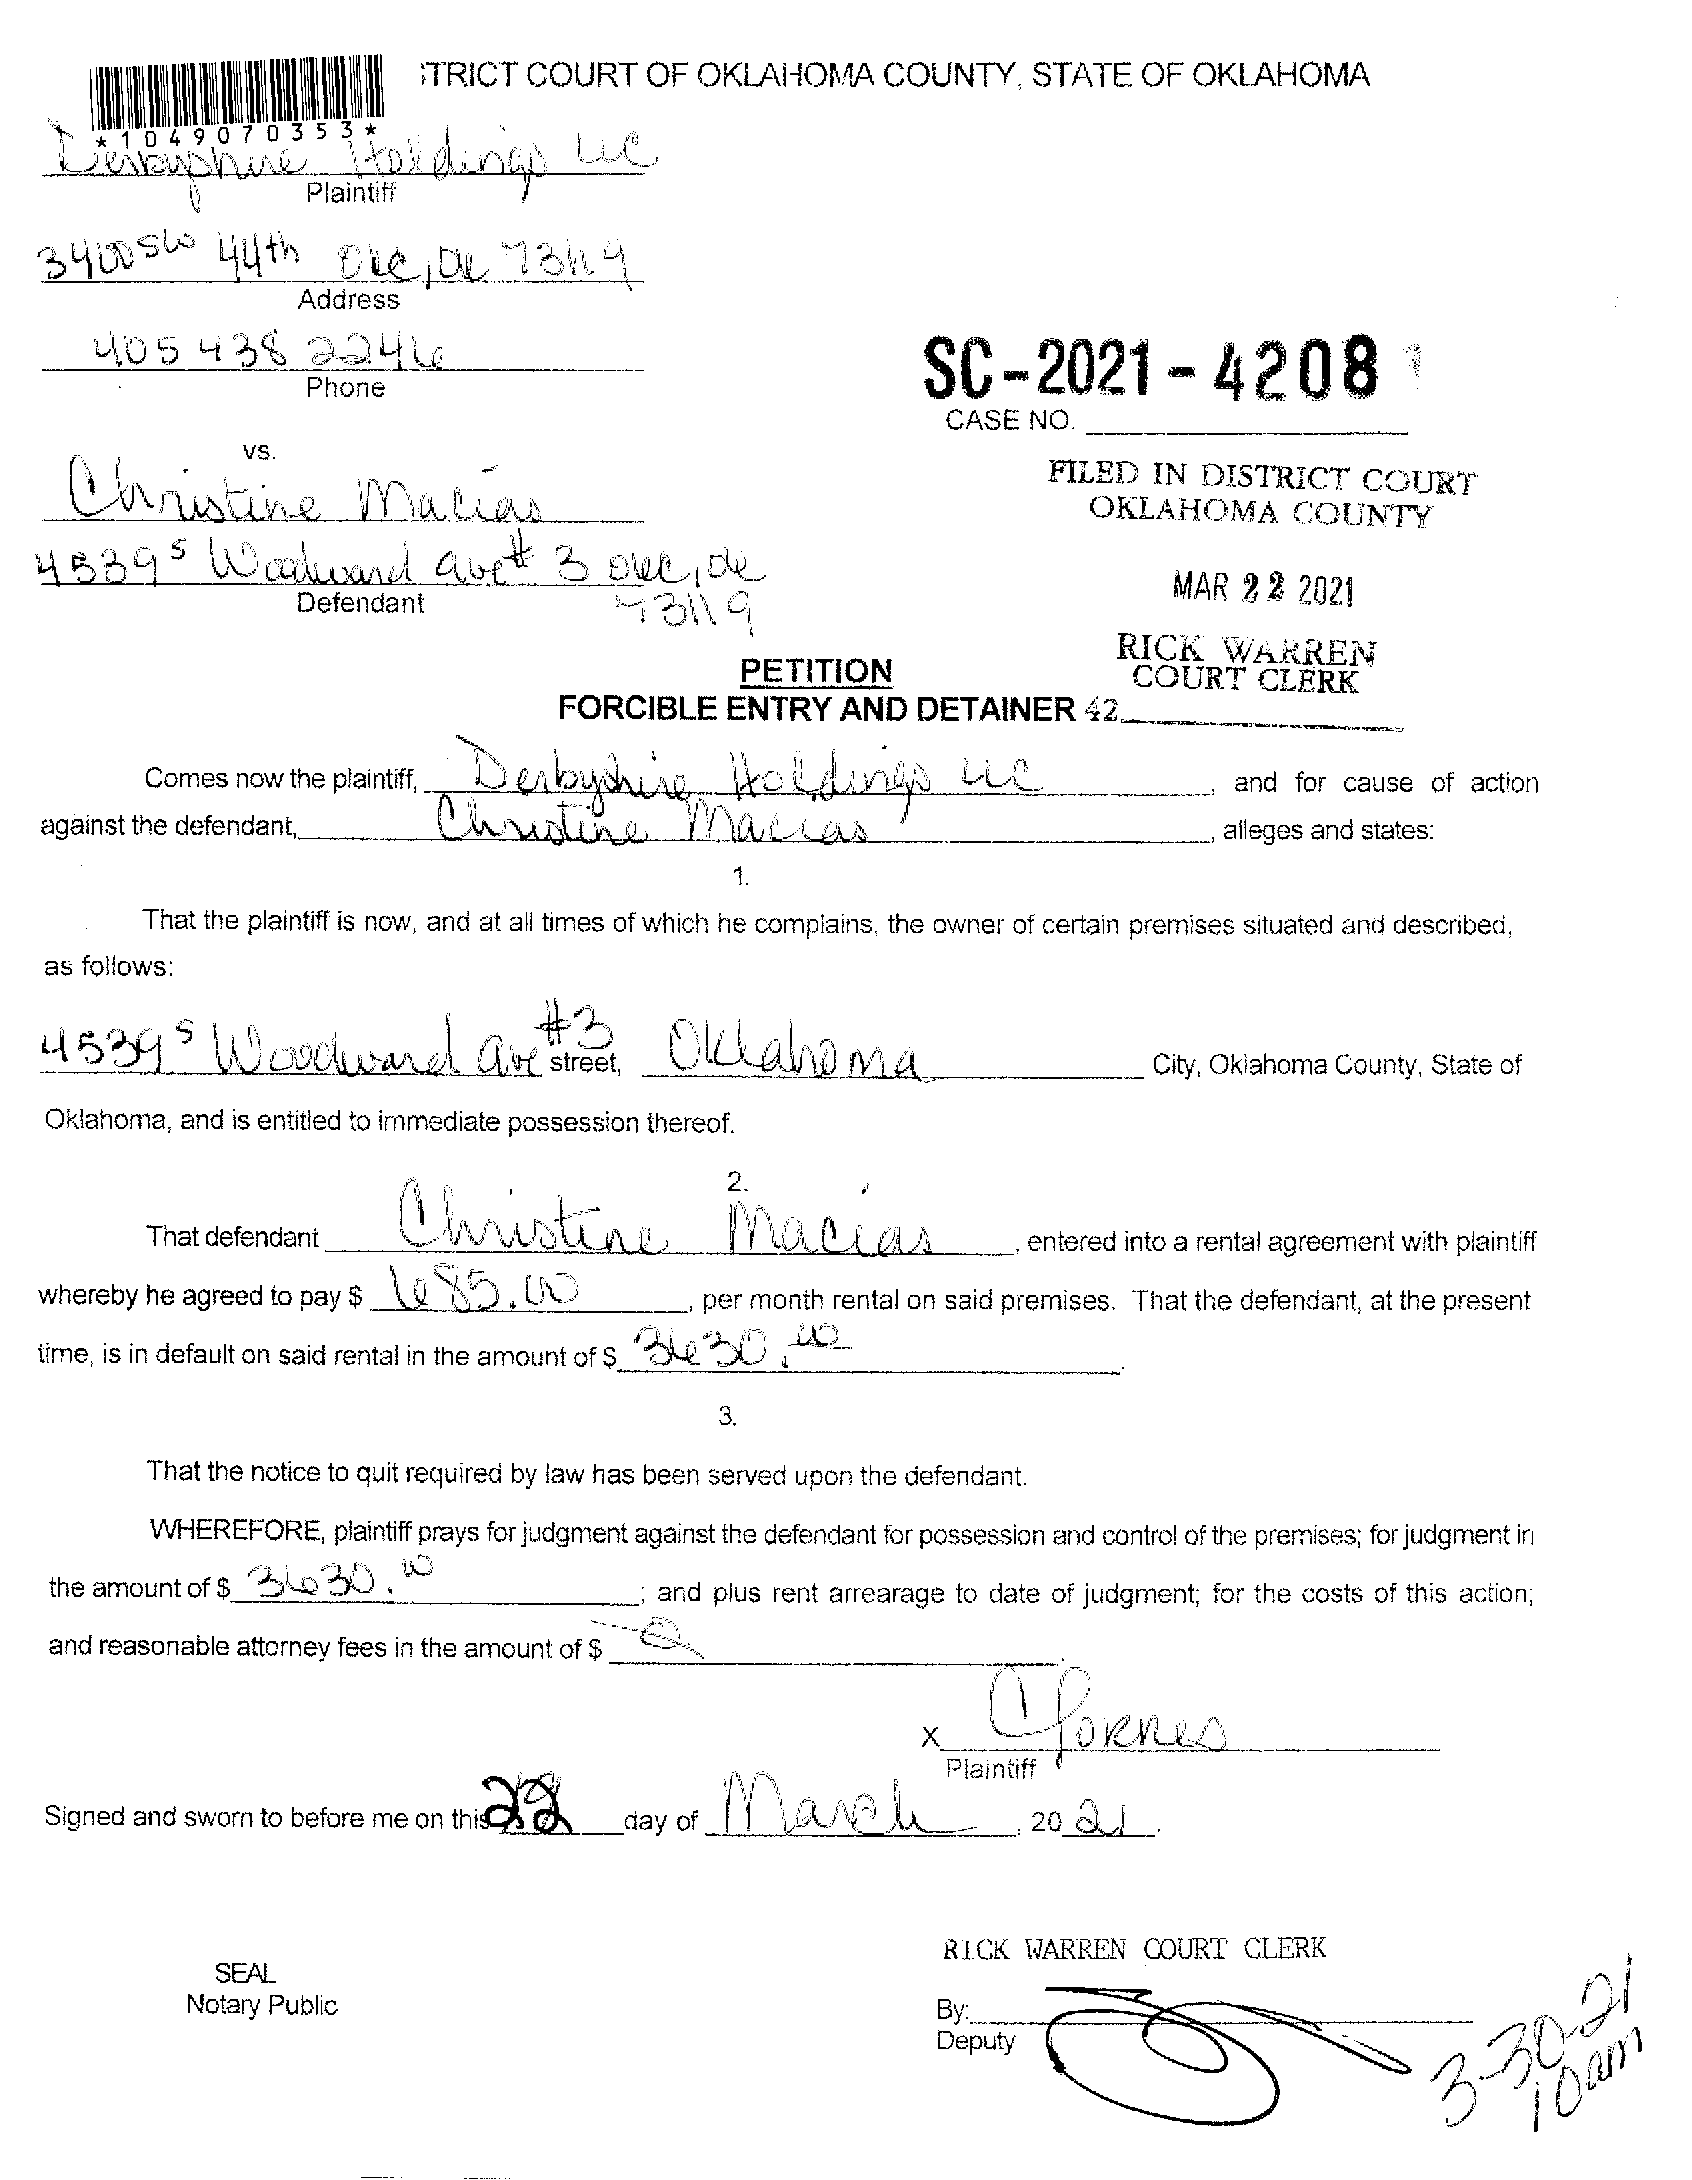 :TRICT COURT OF OKLAHOMA COUNTY, STATE OF OKLAHOMA
*1049070353*
Derbyshire Holdings LLC
Plaintiff
3400 SW 44th OKC, OK 73119
Address
405 438 2246
Phone
SC-2021-4208
CASE NO.
vs.
Christine Macias
FILED IN DISTRICT COURT
OKLAHOMA COUNTY
4539 S Woodward Ave # 3 OKC, OK
Defendant
73119
MAR 22 2021
RICK WARREN
COURT CLERK
PETITION
FORCIBLE ENTRY AND DETAINER 42
Comes now the plaintiff, Derbyshire Holdings LLC, and for cause of action
against the defendant, Christine Macias, alleges and states:
1.
That the plaintiff is now, and at all times of which he complains, the owner of certain premises situated and described,
as follows:
4539 S Woodward Ave #3 street, Oklahoma City, Oklahoma County, State of
Oklahoma, and is entitled to immediate possession thereof.
2.
That defendant Christine Macias, entered into a rental agreement with plaintiff
whereby he agreed to pay $ 685.00, per month rental on said premises. That the defendant, at the present
time, is in default on said rental in the amount of $ 3630.00.
3.
That the notice to quit required by law has been served upon the defendant.
WHEREFORE, plaintiff prays for judgment against the defendant for possession and control of the premises; for judgment in
the amount of $ 3630.00; and plus rent arrearage to date of judgment; for the costs of this action;
and reasonable attorney fees in the amount of $ 0.
x C Fornes
Plaintiff
Signed and sworn to before me on this 22 day of March, 2021.
RICK WARREN COURT CLERK
SEAL
Notary Public
By:
Deputy
3-30-21
10am